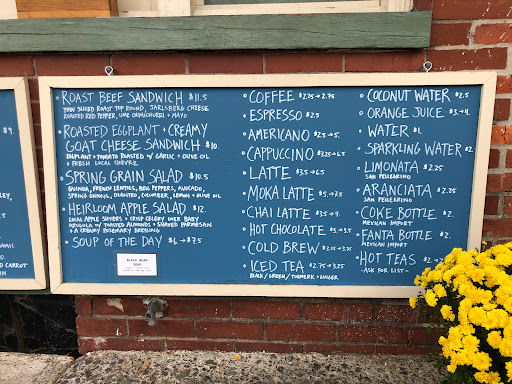 9.
ROAST BEEF SANDWICH $11.5
THIN SLICED ROAST TOP ROUND, JARLSBERG CHEESE
ROASTED RED PEPPER, LIME CHIMICHURRI + MAYO
ROASTED EGGPLANT + CREAMY
GOAT CHEESE SANDWICH $10.
EGGPLANT + TOMATO ROASTED W/ GARLIC + OLIVE OIL
+ FRESH LOCAL CHEVRE
SPRING GRAIN SALAD $10.5
QUINOA, FRENCH LENTILS, BELL PEPPERS, AVOCADO,
SPRING ONIONS, CILANTRO, CUCUMBER, LEMON + OLIVE OIL
HEIRLOOM APPLE SALAD $12.
LOCAL APPLE SLIVERS + CRISP CELERY OVER BABY
ARUGULA W/ TOASTED ALMONDS + SHAVED PARMESAN
+ A CREAMY ROSEMARY DRESSING
SOUP OF THE DAY $6 → $7.5
BLACK BEAN
SOUP
COFFEE $2.25 → 2.75
ESPRESSO $2.5
AMERICANO $2.5 → 5.
CAPPUCCINO $3.25 → 6.5
LATTE $3.5 → 6.5
MOKA LATTE $3.5 → 7.
CHAI LATTE $3.5 → 4.
HOT CHOCOLATE $2.5 → 3.75
COLD BREW $3.25 → 3.75
ICED TEA $2.75 → 3.25
BLACK / GREEN / TURMERIC + GINGER
COCONUT WATER $2.5
ORANGE JUICE $3. → 4.
WATER $1
SPARKLING WATER $2
LIMONATA $2.25
SAN PELLEGRINO
ARANCIATA $2.25
SAN PELLEGRINO
COKE BOTTLE $2.
MEXICAN IMPORT
FANTA BOTTLE $2.
MEXICAN IMPORT
HOT TEAS $2.
- ASK FOR LIST -
D CARROT